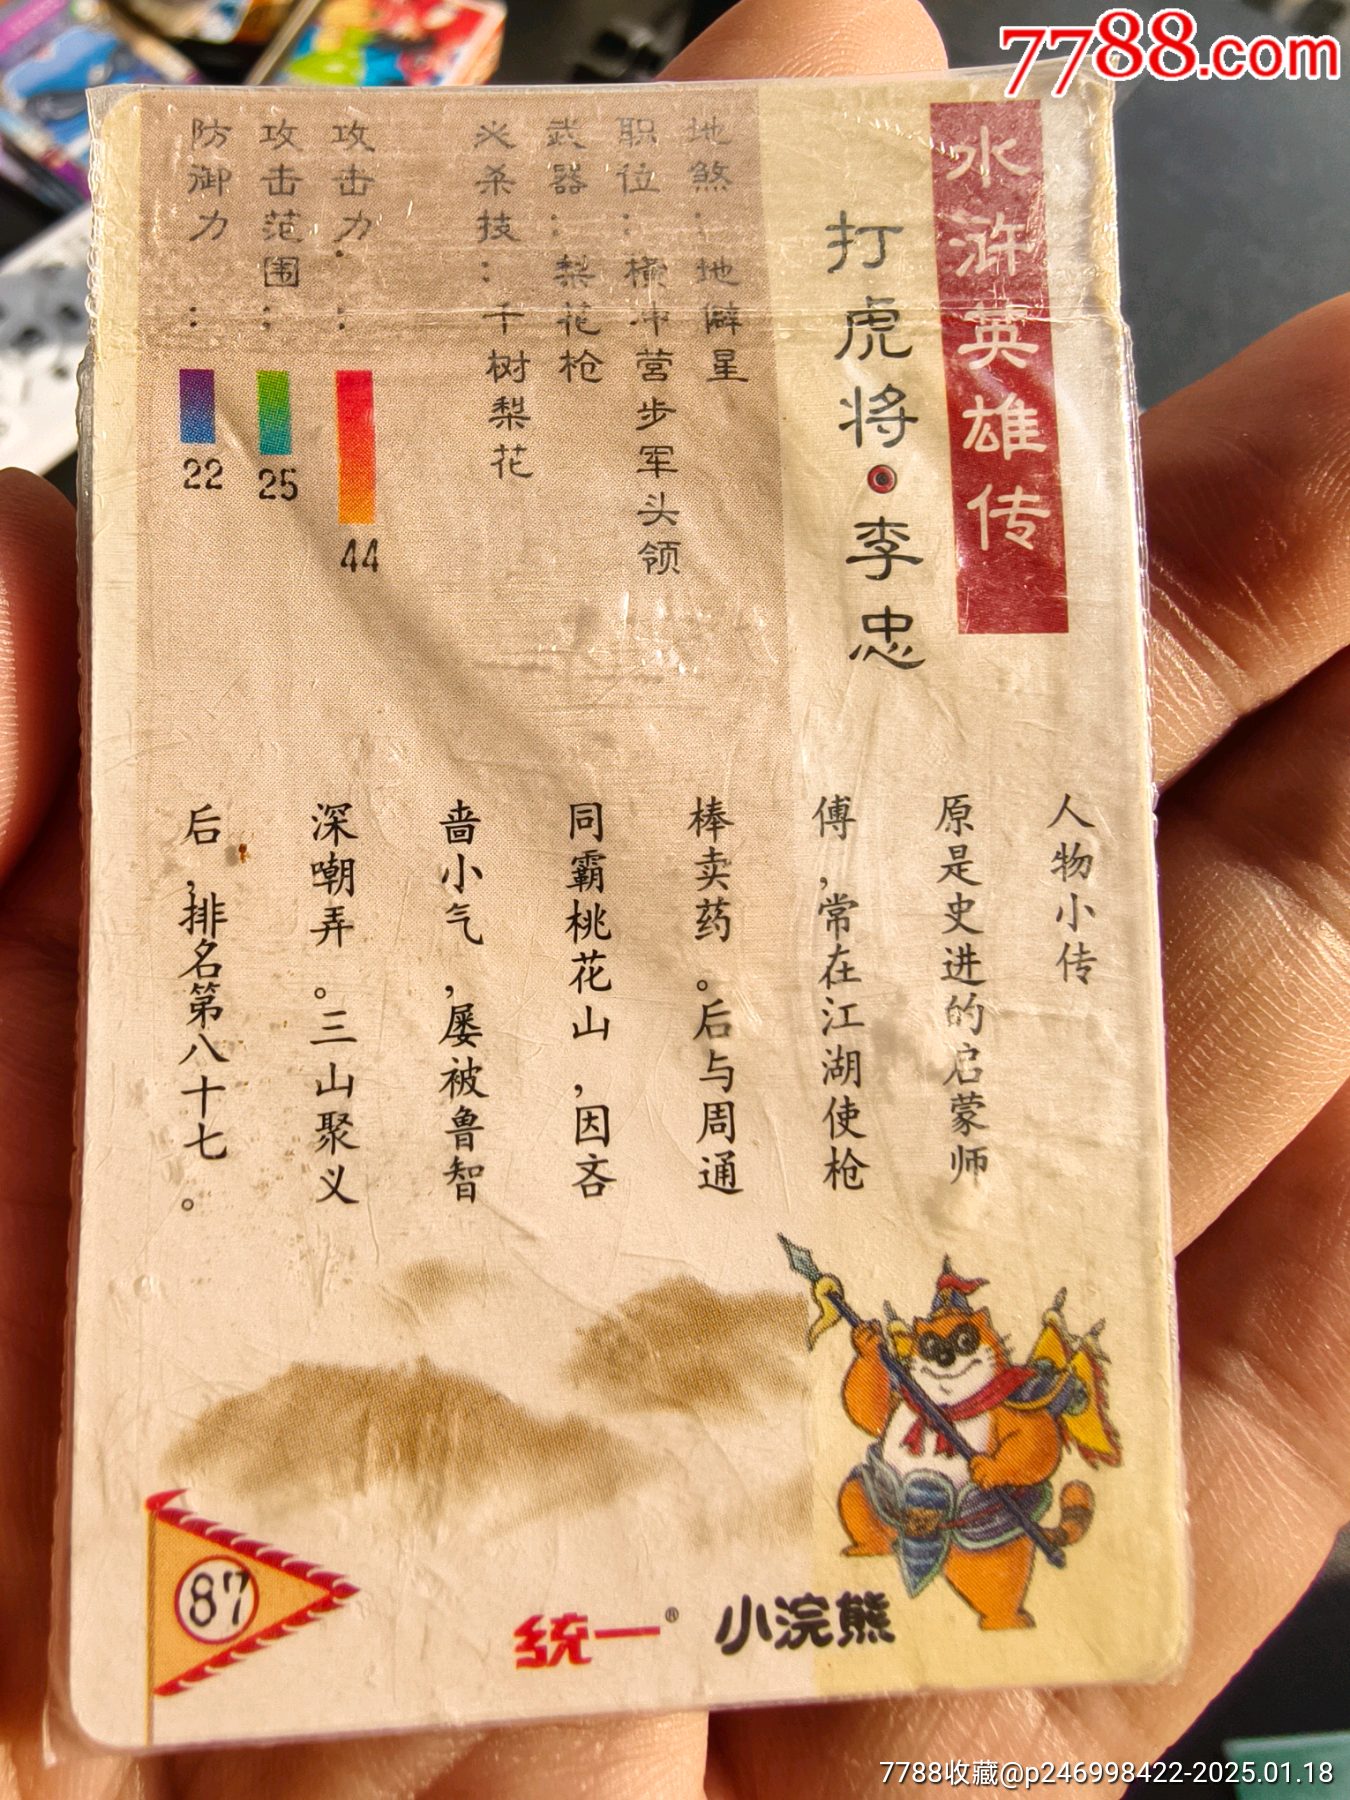 7788.com
水浒英雄传
打虎将·李忠
地煞：地僻星
职位：横冲营步军头领
武器：梨花枪
必杀技：千树梨花
攻击力：44
攻击范围：25
防御力：22
人物小传
原是史进的启蒙师
傅，常在江湖使枪
棒卖药。后与周通
同霸桃花山，因吝
啬小气，屡被鲁智
深嘲弄。三山聚义
后，排名第八十七。
87
统一® 小浣熊
7788收藏@p246998422-2025.01.18